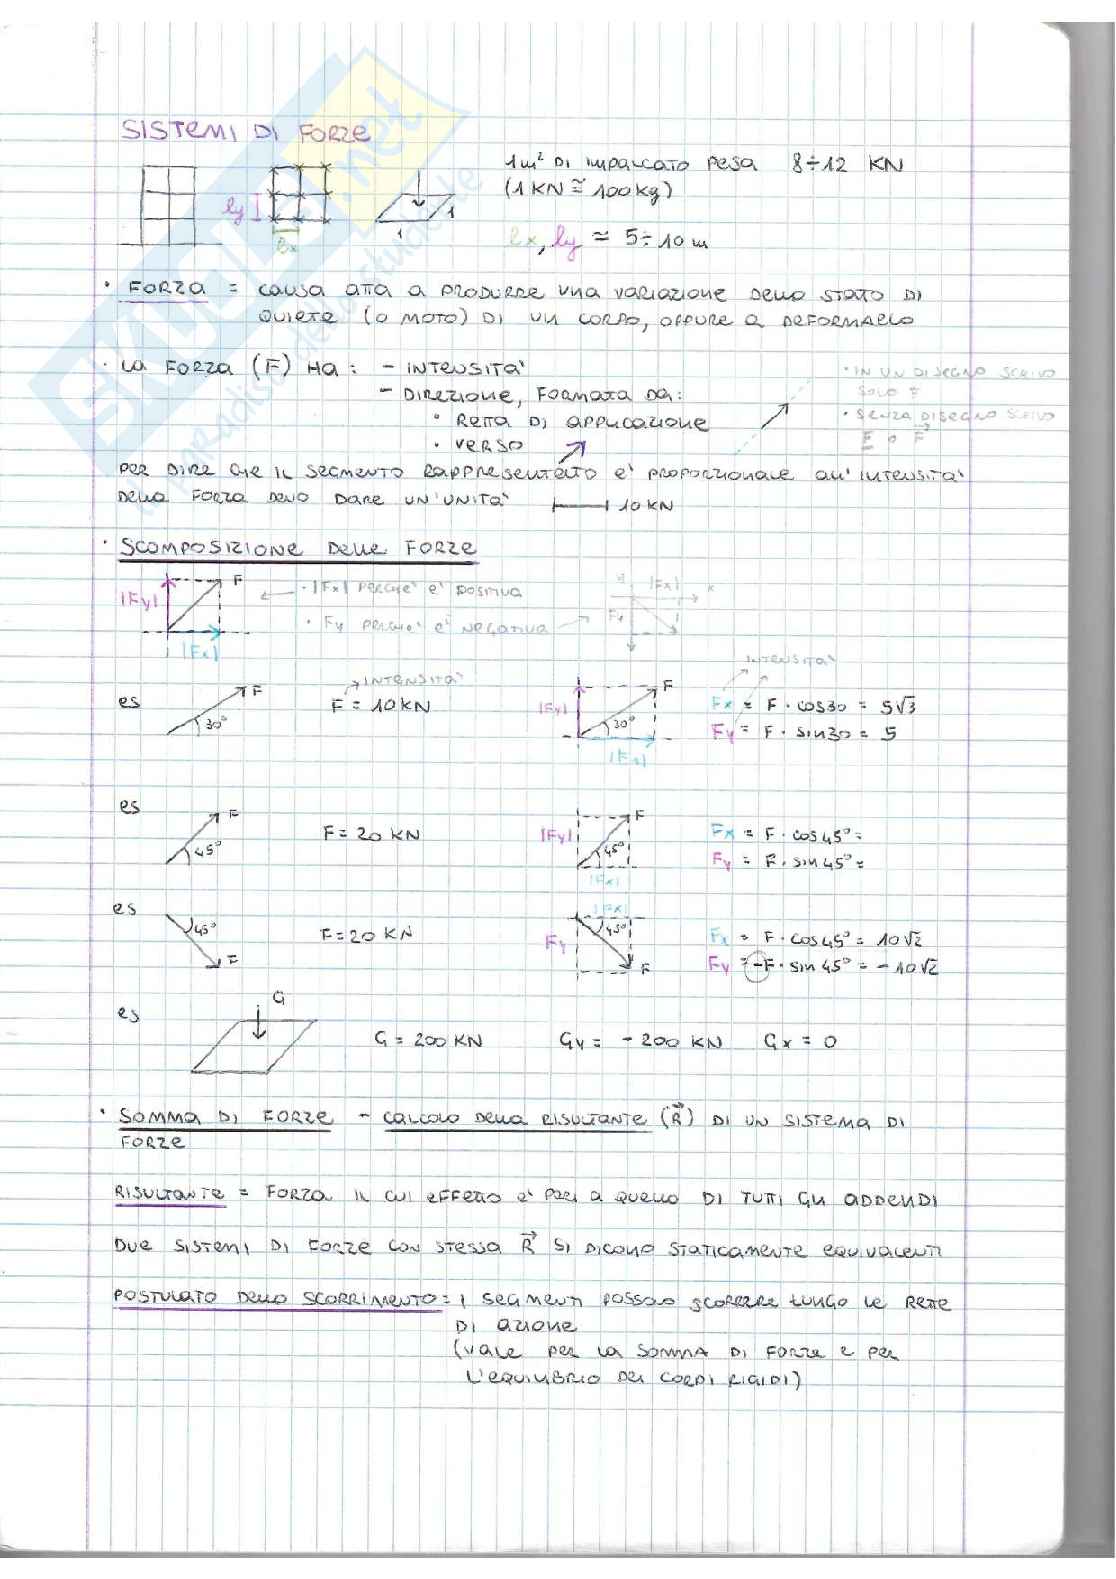 SISTEMI DI FORZE
1m² DI IMPALCATO PESA 8÷12 KN
(1 KN ≅ 100 kg)
ly
lx
1
1
lx, ly ≃ 5÷10 m
· FORZA = CAUSA ATTA A PRODURRE UNA VARIAZIONE DELLO STATO DI
QUIETE (O MOTO) DI UN CORPO, OPPURE A DEFORMARLO
· LA FORZA (F) HA: - INTENSITA'
- DIREZIONE, FORMATA DA:
· RETTA DI APPLICAZIONE
· VERSO
· IN UN DISEGNO SCRIVO
SOLO F
· SENZA DISEGNO SCRIVO
F O F⃗
PER DIRE CHE IL SEGMENTO RAPPRESENTATO E' PROPORZIONALE ALL'INTENSITA'
DELLA FORZA DEVO DARE UN'UNITA' 10 KN
· SCOMPOSIZIONE DELLE FORZE
F
|Fy|
|Fx|
· |Fx| PERCHE' E' POSITIVA
· Fy PERCHE' E' NEGATIVA
|Fx| x
Fy
es F 30° INTENSITA'
F = 10 KN
|Fy| F 30° |Fx|
INTENSITA'
Fx = F · cos30 = 5√3
Fy = F · sin30 = 5
es F 45° F = 20 KN
|Fy| F 45° |Fx|
Fx = F · cos45° =
Fy = F · sin45° =
es 45° F F = 20 KN
|Fx| 45° Fy F
Fx = F · cos45° = 10√2
Fy = -F · sin45° = -10√2
es G G = 200 KN Gy = -200 KN Gx = 0
· SOMMA DI FORZE - CALCOLO DELLA RISULTANTE (R⃗) DI UN SISTEMA DI
FORZE
RISULTANTE = FORZA IL CUI EFFETTO E' PARI A QUELLO DI TUTTI GLI ADDENDI
DUE SISTEMI DI FORZE CON STESSA R⃗ SI DICONO STATICAMENTE EQUIVALENTI
POSTULATO DELLO SCORRIMENTO = I SEGMENTI POSSONO SCORRERE LUNGO LE RETTE
DI AZIONE
(VALE PER LA SOMMA DI FORZE E PER
L'EQUILIBRIO DEI CORPI RIGIDI)